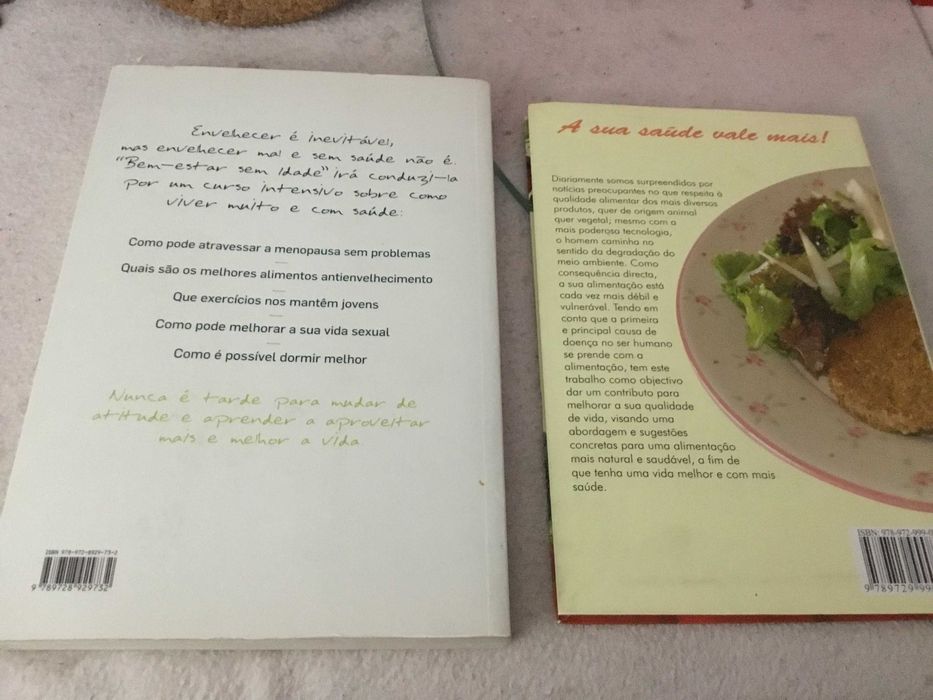 Envelhecer é inevitável,
mas envelhecer mal e sem saúde não é.
"Bem-estar sem Idade" irá conduzi-la
por um curso intensivo sobre como
viver muito e com saúde:
Como pode atravessar a menopausa sem problemas
Quais são os melhores alimentos antienvelhecimento
Que exercícios nos mantêm jovens
Como pode melhorar a sua vida sexual
Como é possível dormir melhor
Nunca é tarde para mudar de
atitude e aprender a aproveitar
mais e melhor a vida
ISBN 978-972-8929-73-2
9 789728 929732
A sua saúde vale mais!
Diariamente somos surpreendidos por
notícias preocupantes no que respeita à
qualidade alimentar dos mais diversos
produtos, quer de origem animal
quer vegetal; mesmo com a
mais poderosa tecnologia,
o homem caminha no
sentido da degradação do
meio ambiente. Como
consequência directa,
a sua alimentação está
cada vez mais débil e
vulnerável. Tendo em
conta que a primeira
e principal causa de
doença no ser humano
se prende com a
alimentação, tem este
trabalho como objectivo
dar um contributo para
melhorar a sua qualidade
de vida, visando uma
abordagem e sugestões
concretas para uma alimentação
mais natural e saudável, a fim de
que tenha uma vida melhor e com mais
saúde.
ISBN: 978-972-999-0
9 789729 99